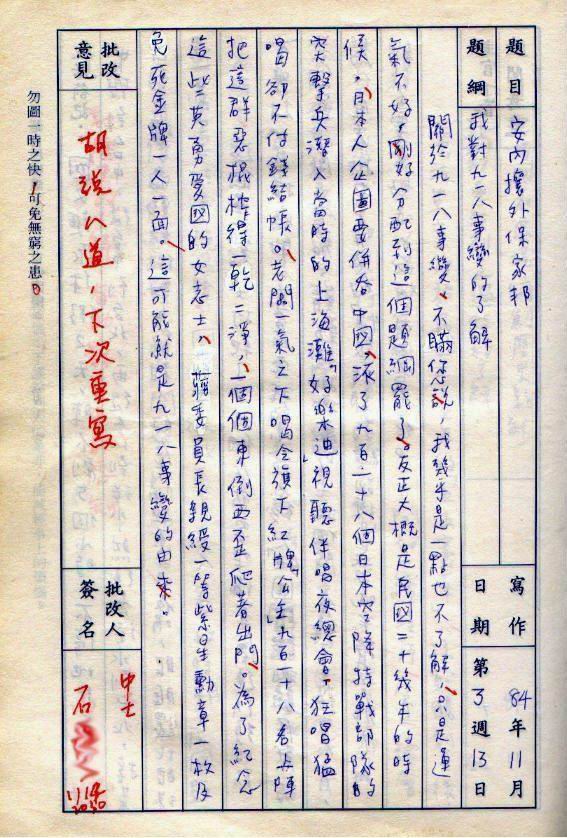 題目
安內攘外保家邦
題綱
我對九一八事變的了解
寫作日期
84年11月
第3週13日
關於九一八事變,不瞞您說,我幾乎是一點也不了解,只是運
氣不好,剛好分配到這個題綱罷了。反正大概是民國二十幾年的時
候,日本人企圖要併吞中國,派了九百一十八個日本空降特戰部隊的
突擊兵潛入當時的上海灘"好樂迪視聽伴唱夜總會",狂唱猛
喝卻不付錢結帳。老闆一氣之下喝令旗下紅牌"公主"九百一十八名上陣
把這群惡棍榨得一乾二淨,一個個東倒西歪爬著出門。為了紀念
這些英勇愛國的女志士,蔣委員長親綬一等紫星勳章一枚及
免死金牌一人一面。這可能就是九一八事變的由來。
批改意見
胡說八道,下次重寫
批改人簽名
中士
石
11/14
2030
勿圖一時之快,可免無窮之患。